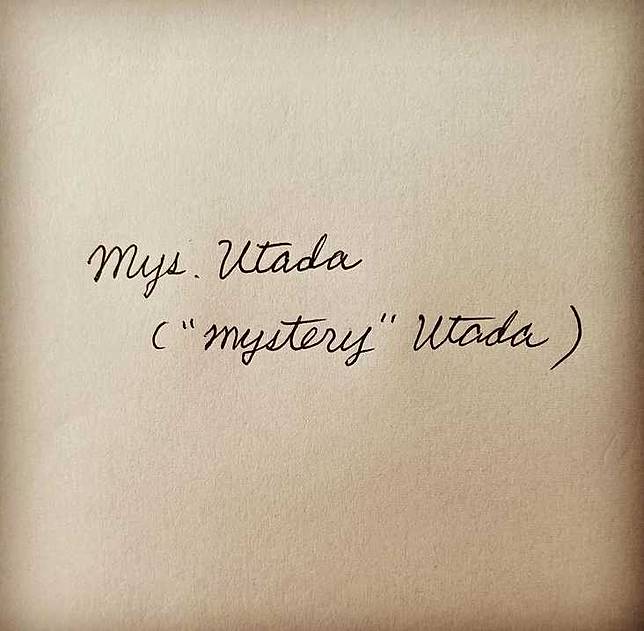 Mys. Utada
("mystery" Utada)